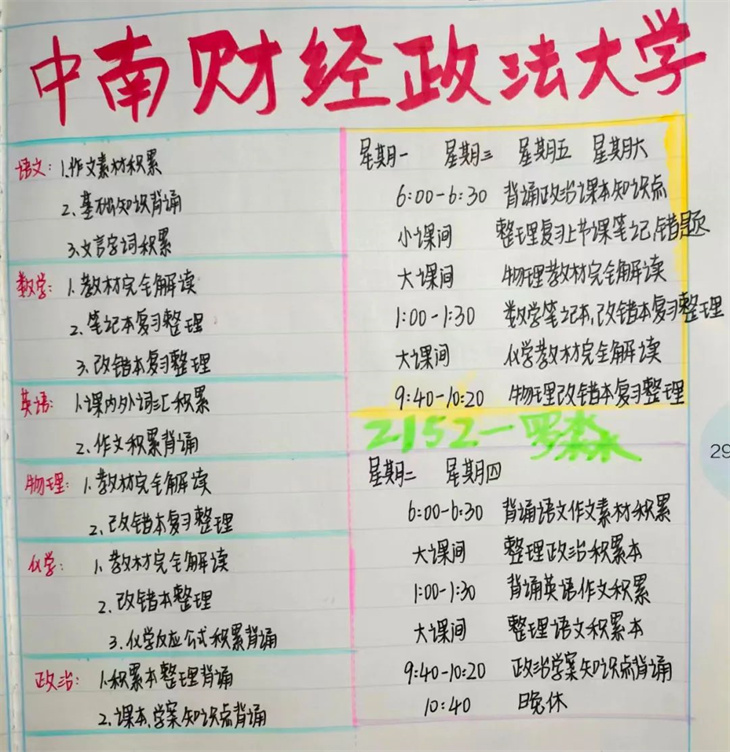 中南财经政法大学
语文：1.作文素材积累
2.基础知识背诵
3.文言字词积累
数学：1.教材完全解读
2.笔记本复习整理
3.改错本复习整理
英语：1.课内外词汇积累
2.作文积累背诵
物理：1.教材完全解读
2.改错本复习整理
化学：1.教材完全解读
2.改错本整理
3.化学反应公式积累背诵
政治：1.积累本整理背诵
2.课本、学案知识点背诵
星期一 星期三 星期五 星期六
6:00-6:30 背诵政治课本知识点
小课间 整理复习上节课笔记、错题
大课间 物理教材完全解读
1:00-1:30 数学笔记本、改错本复习整理
大课间 化学教材完全解读
9:40-10:20 物理改错本复习整理
2152-罗森
星期二 星期四
6:00-6:30 背诵语文作文素材积累
大课间 整理政治积累本
1:00-1:30 背诵英语作文积累
大课间 整理语文积累本
9:40-10:20 政治学案知识点背诵
10:40 晚休
29